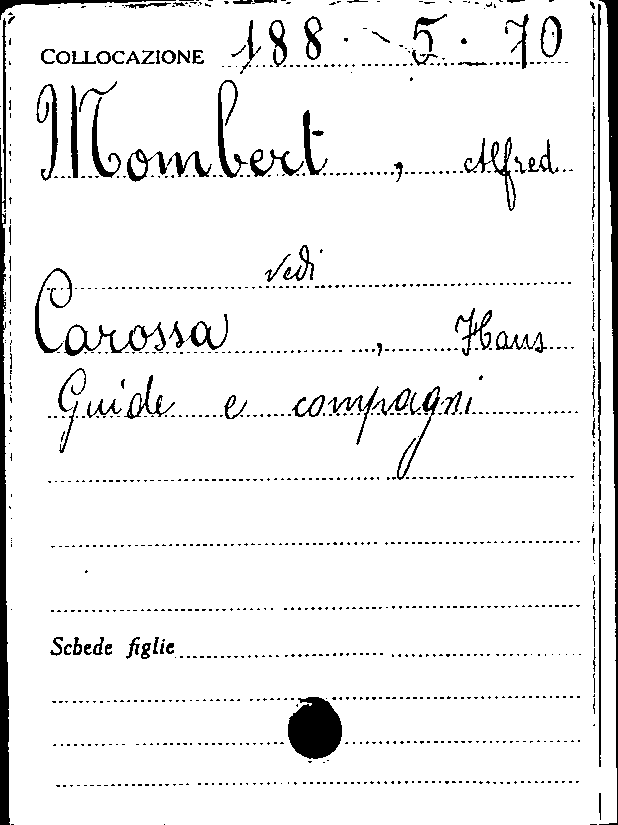 COLLOCAZIONE 188 · 5 · 70
Mombert, Alfred
vedi
Carossa, Hans
Guide e compagni
Schede figlie